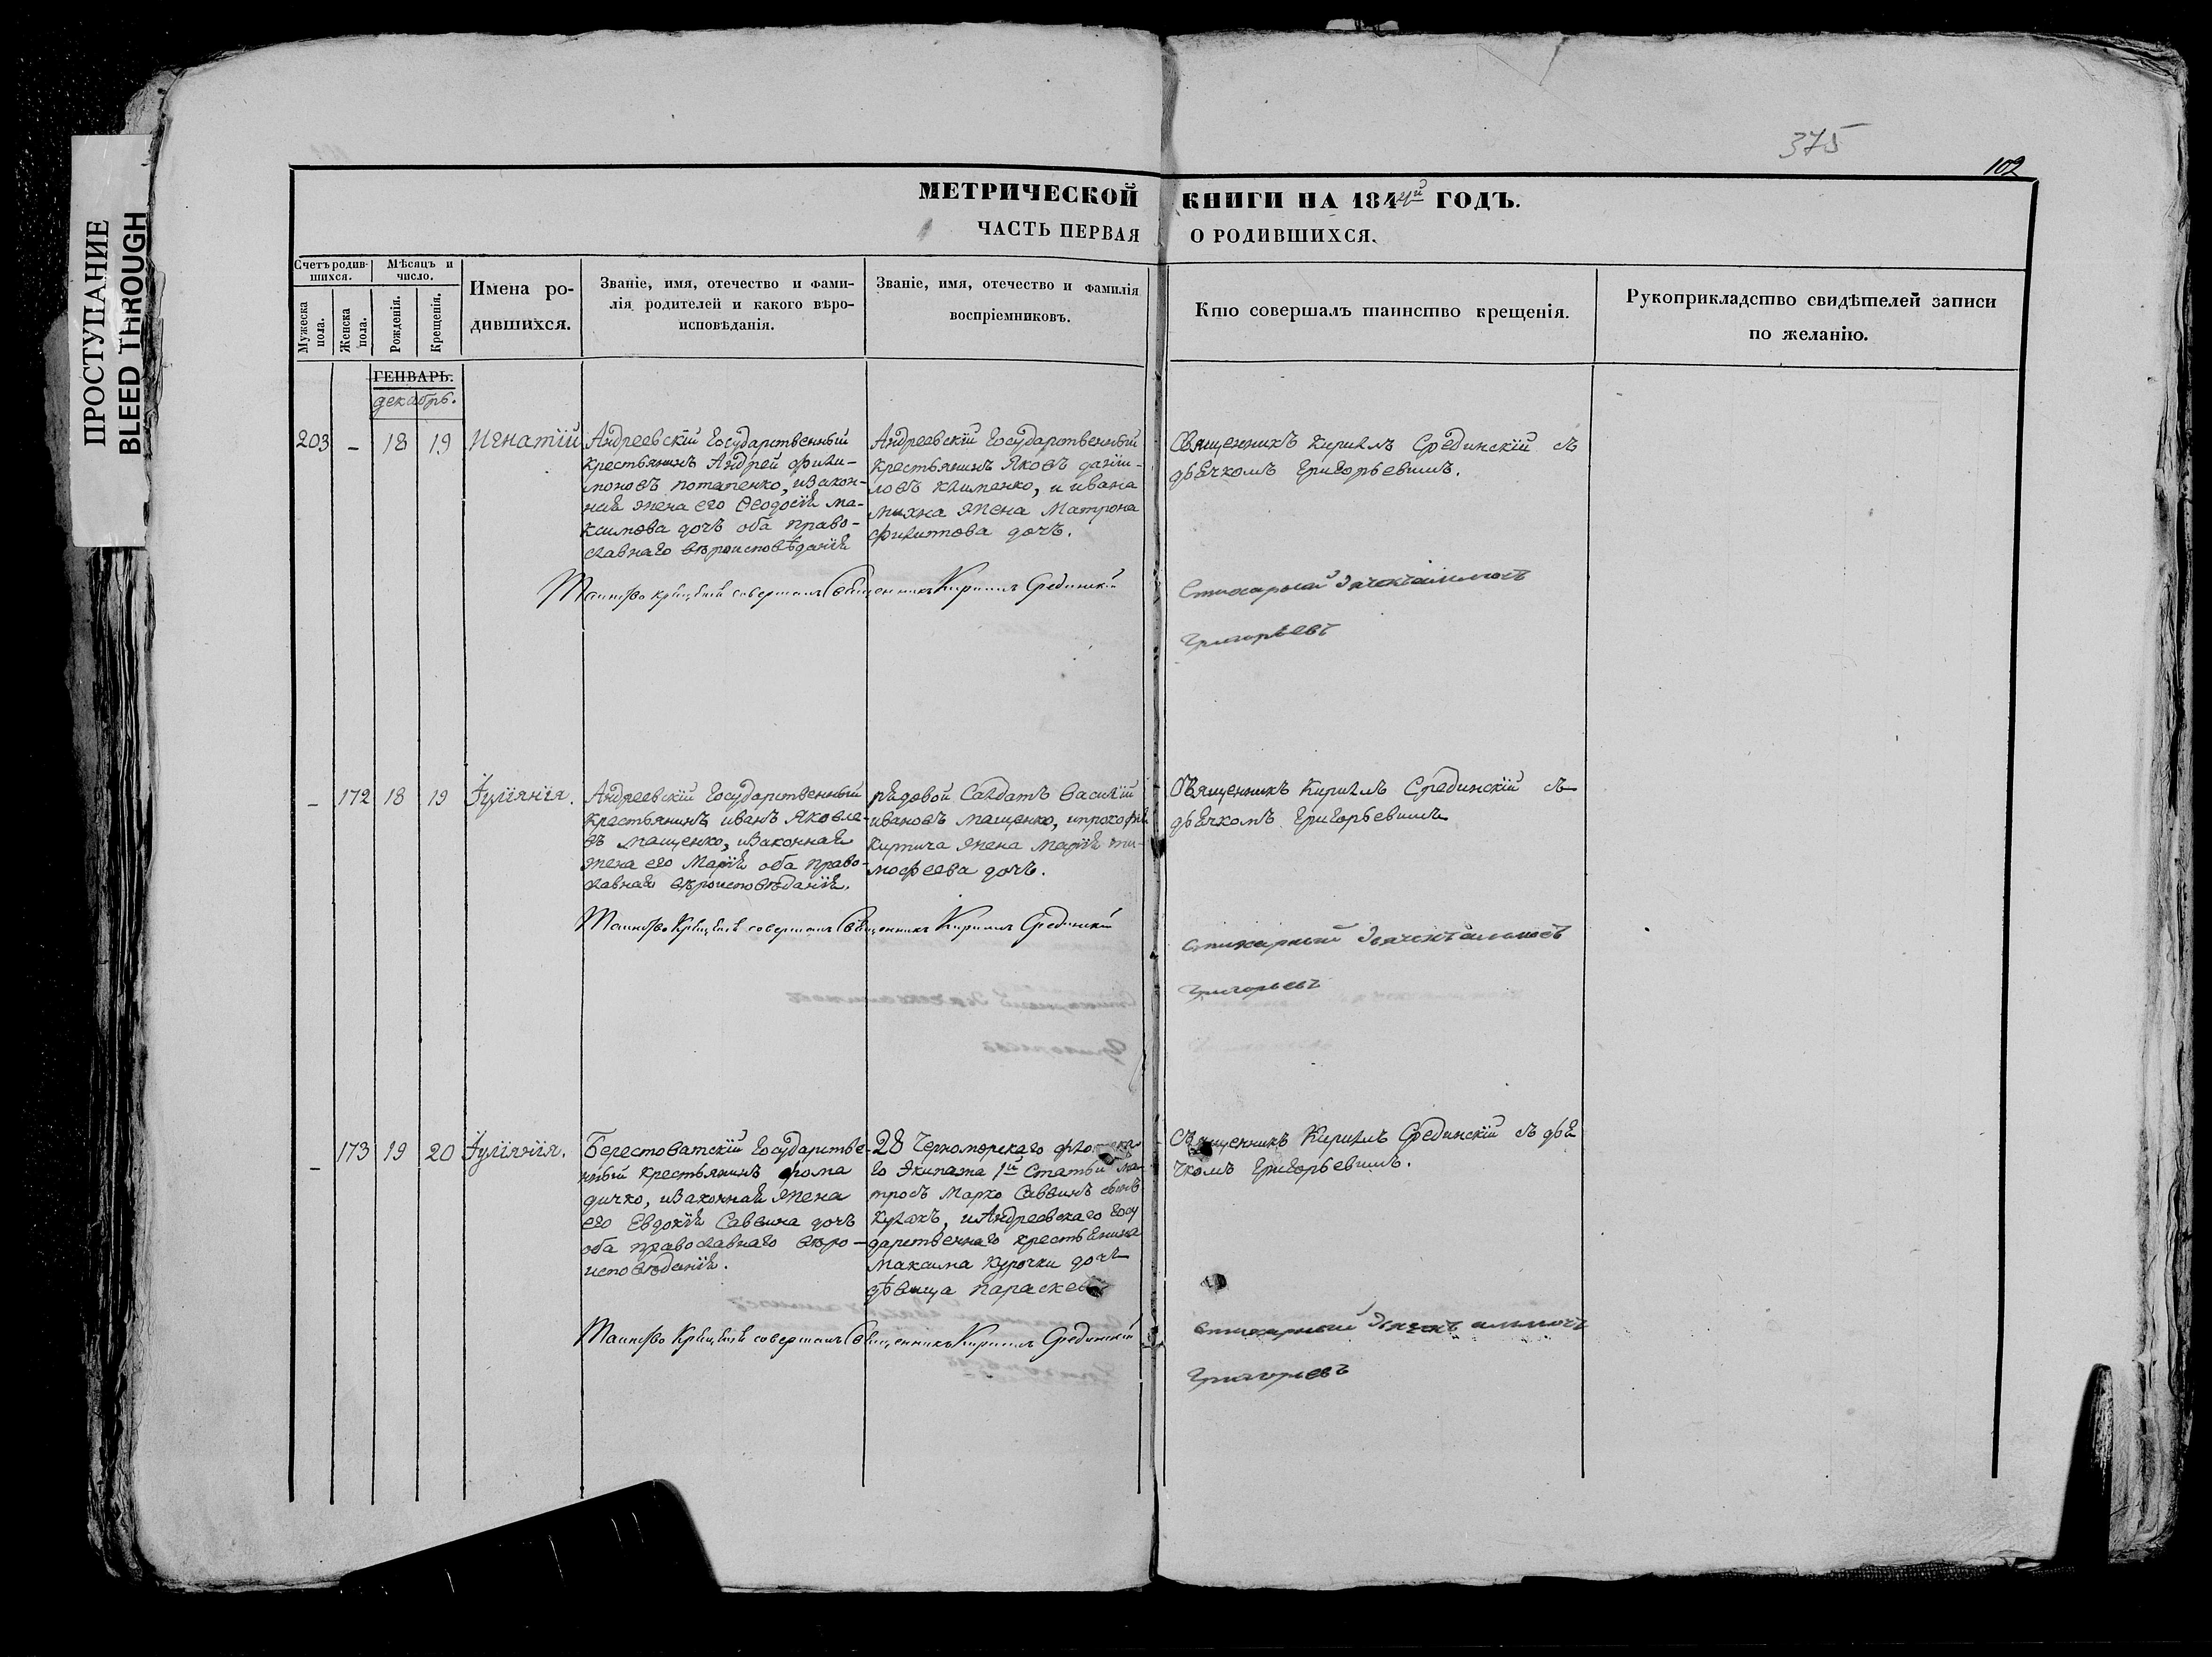 ПРОСТУПАНИЕ
BLEED THROUGH
375
102
МЕТРИЧЕСКОЙ КНИГИ НА 184 ГОДЪ.
ЧАСТЬ ПЕРВАЯ О РОДИВШИХСЯ.
Счетъ родив-
шихся.
Мужеска
пола.
Женска
пола.
Мѣсяцъ и
число.
Рожденія.
Крещенія.
Имена ро-
дившихся.
Званіе, имя, отечество и фами-
лія родителей и какого вѣро-
исповѣданія.
Званіе, имя, отечество и фамилія
воспріемниковъ.
Кто совершалъ таинство крещенія.
Рукоприкладство свидѣтелей записи
по желанію.
ГЕНВАРЬ.
декабрь.
203 - 18 19 Игнатій
Андреевскій Государственный
крестьянинъ Андрей Фили-
моновъ Потапенко, изакон-
ная жена его Ѳеодосія Ма-
ксимова дочь оба право-
славнаго вѣроисповѣданія
Андреевскій Государственный
крестьянинъ Яковъ Дани-
ловъ Клименко, и Ивана
жена Матрона
Филиппова дочь.
Священникъ Кирилъ Срединскій съ
дьячкомъ Григорьевымъ.
Таинство крещенія совершалъ Священникъ Кирилъ Срединскій
Стихарный дьячекъ
Григорьевъ
- 172 18 19 Іуліянія.
Андреевскій Государственный
крестьянинъ Иванъ Яковле-
въ Мащенко, изаконная
жена его Марія оба право-
славнаго вѣроисповѣданія.
рядовой Салдатъ Василій
Ивановъ Мащенко, ипрокофія
Кирпича жена Марія Ти-
мофеева дочь.
Священникъ Кирилъ Срединскій съ
дьячкомъ Григорьевымъ
Таинство Крещенія совершалъ Священникъ Кирилъ Срединскій
стихарный дьячекъ
Григорьевъ
- 173 19 20 Іуліянія.
Берестоватскій Государстве-
нный крестьянинъ Фома
Дичко, изаконная жена
его Евдокія Саввина дочь
оба православнаго вѣро-
исповѣданія.
28 Черноморскаго
го Экипажа 1й Статьи ма-
тросъ Марко Саввинъ сынъ
Кулакъ, иАндреевскаго Госу
дарственнаго крестьянина
Максима Курочки дочь
дѣвица
Священникъ Кирилъ Срединскій съ дья
чкомъ Григорьевымъ.
Таинство Крещенія совершалъ Священникъ Кирилъ Срединскій
стихарный дьячекъ
Григорьевъ